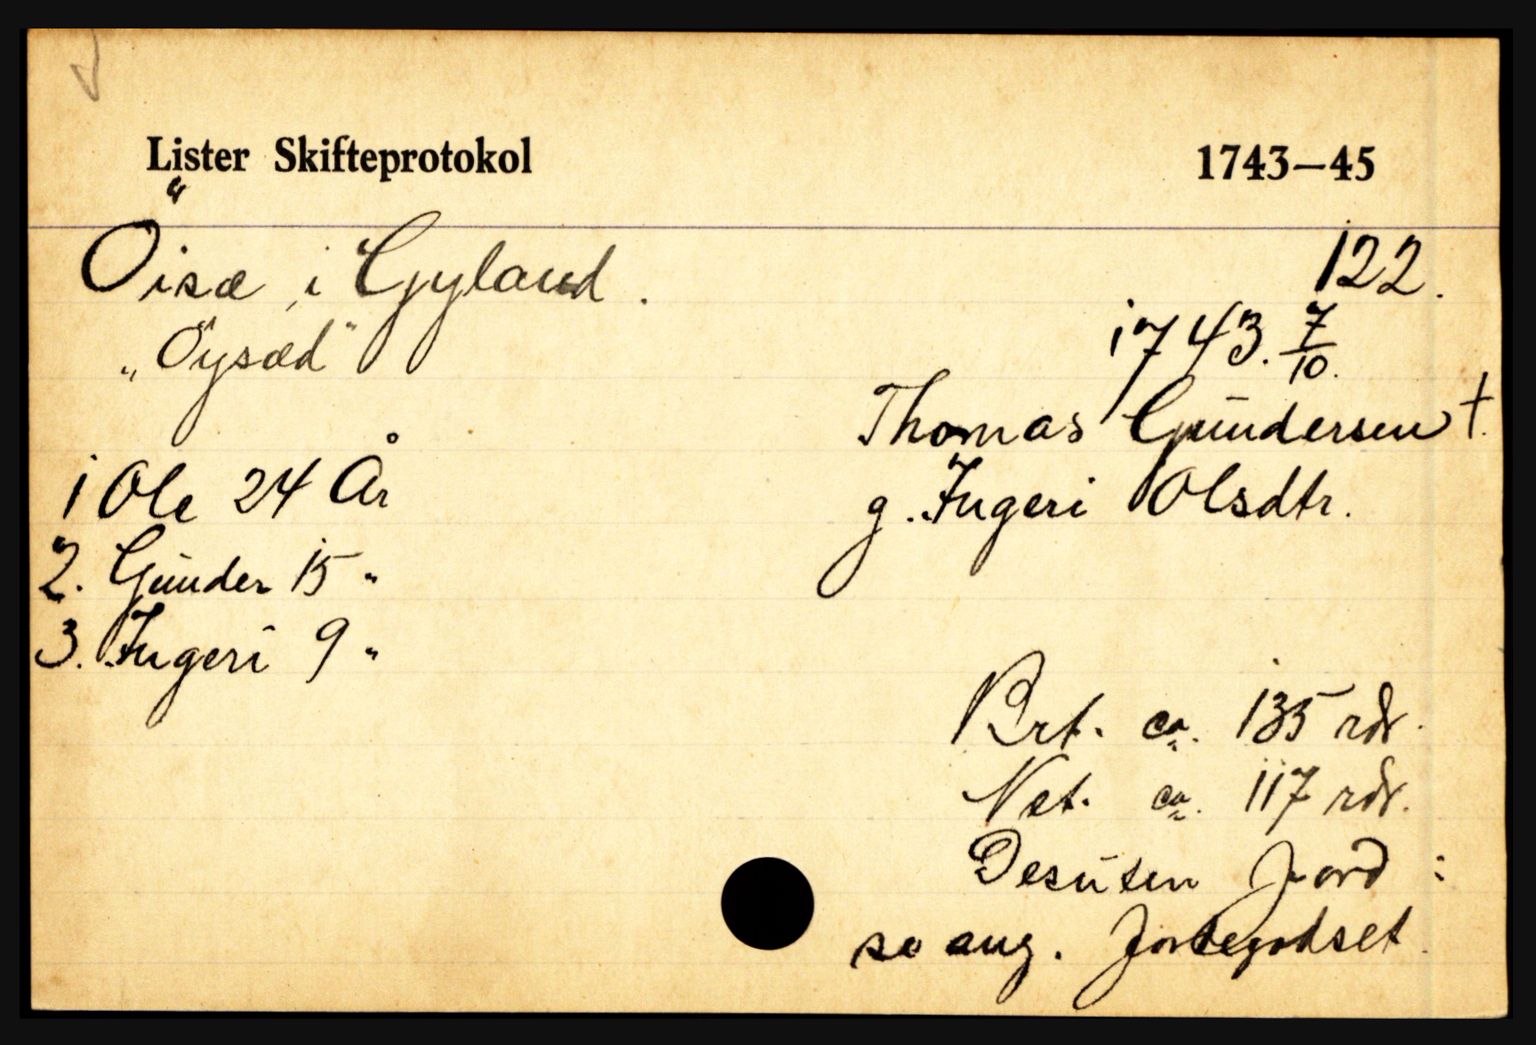 Lister Skifteprotokol 1743–45
Öisæ i Gyland. 122.
„Öysæd" 1743. 7/10.
Thomas Gundersen †.
1 Ole 24 År g. Ingeri Olsdtr.
2. Gunder 15 "
3. Ingeri 9 "
Brt. ca. 135 rdr.
Net. ca. 117 rdr.
Desuten Jord :
se ang. Jordegodset.